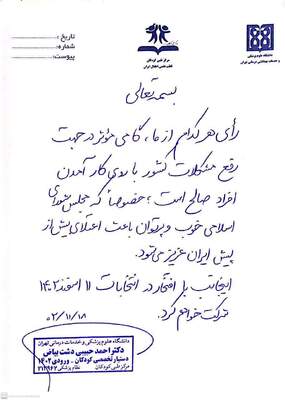 تاریخ :
شماره:
پیوست:
مرکز طبی کودکان
قطب علمی اطفال ایران
دانشگاه علوم پزشکی
و خدمات بهداشتی درمانی تهران
بسمه تعالی
رأی هر کدام از ما، گامی مؤثر در جهت
رفع مشکلات کشور با روی کار آمدن
افراد صالح است؛ خصوصاً که مجلس شورای
اسلامی خوب و پرتوان باعث اعتلای بیش از
پیش ایران عزیز می‌شود.
اینجانب با افتخار در انتخابات ۱۱ اسفند ۱۴۰۲
شرکت خواهم کرد.
۰۲/۱۱/۱۸
دانشگاه علوم پزشکی و خدمات درمانی تهران
دکتر احمد حبیبی دشت بیاض
دستیار تخصصی کودکان - ورودی ۱۴۰۲
مرکز طبی کودکان نظام پزشکی